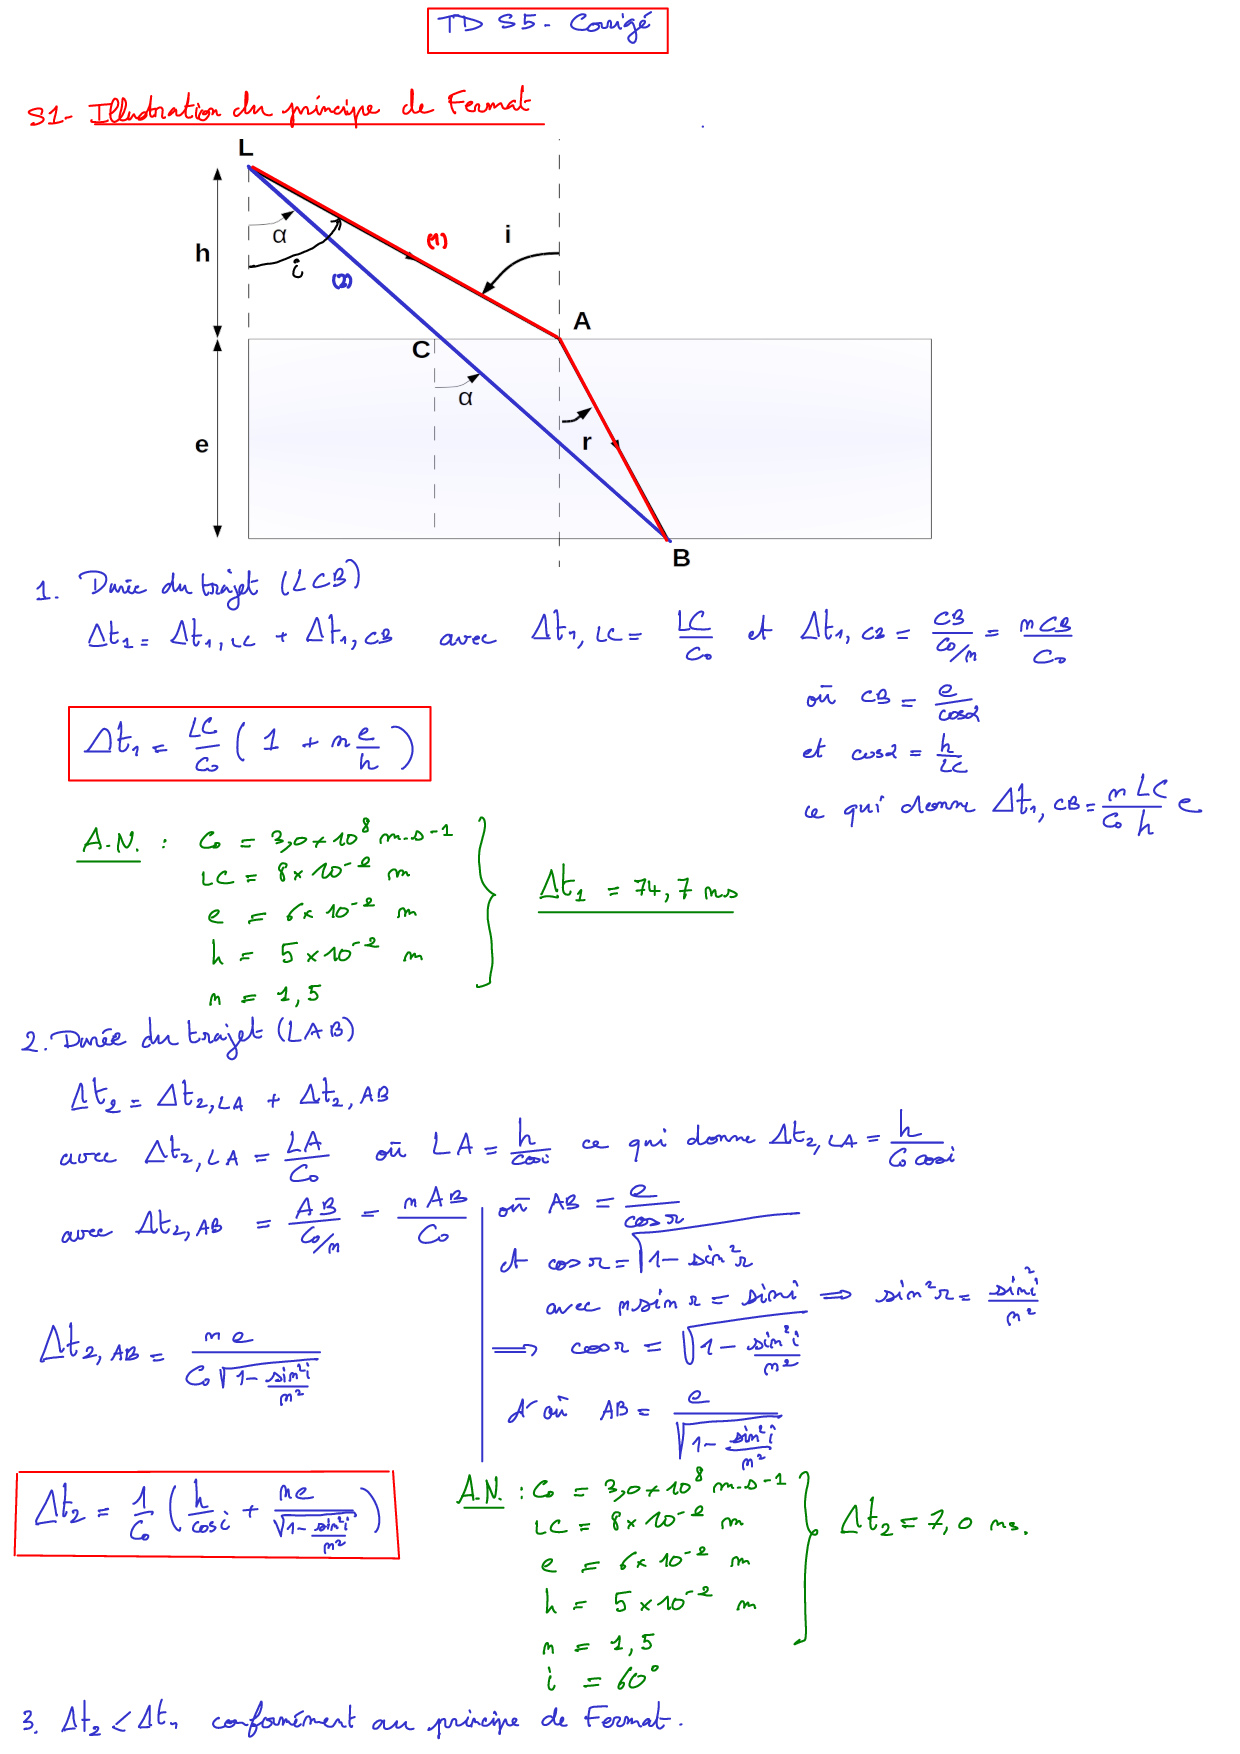 TD S5 - Corrigé
S1- Illustration du principe de Fermat
L
h
α
i
(2)
(1)
i
A
C
α
e
r
B
1. Durée du trajet (LCB)
Δt₁ = Δt₁,LC + Δt₁,CB avec Δt₁,LC = LC/C₀ et Δt₁,CB = CB/(C₀/n) = nCB/C₀
où CB = e/cosα
Δt₁ = LC/C₀ ( 1 + n e/h )
et cosα = h/LC
ce qui donne Δt₁,CB = n LC/(C₀ h) e
A.N. : C₀ = 3,0×10⁸ m.s-1
LC = 8×10⁻² m
e = 6×10⁻² m
h = 5×10⁻² m
n = 1,5
Δt₁ = 74,7 ns
2. Durée du trajet (LAB)
Δt₂ = Δt₂,LA + Δt₂,AB
avec Δt₂,LA = LA/C₀ où LA = h/cosi ce qui donne Δt₂,LA = h/(C₀ cosi)
avec Δt₂,AB = AB/(C₀/n) = nAB/C₀ où AB = e/cosr
et cosr = √(1 - sin²r)
avec nsinr = sini ⟹ sin²r = sin²i/n²
Δt₂,AB = ne/(C₀√(1 - sin²i/n²))
⟹ cosr = √(1 - sin²i/n²)
d'où AB = e/√(1 - sin²i/n²)
Δt₂ = 1/C₀ ( h/cosi + ne/√(1 - sin²i/n²) )
A.N. : C₀ = 3,0×10⁸ m.s-1
LC = 8×10⁻² m
e = 6×10⁻² m
h = 5×10⁻² m
n = 1,5
i = 60°
Δt₂ = 7,0 ns.
3. Δt₂ < Δt₁ conformément au principe de Fermat.